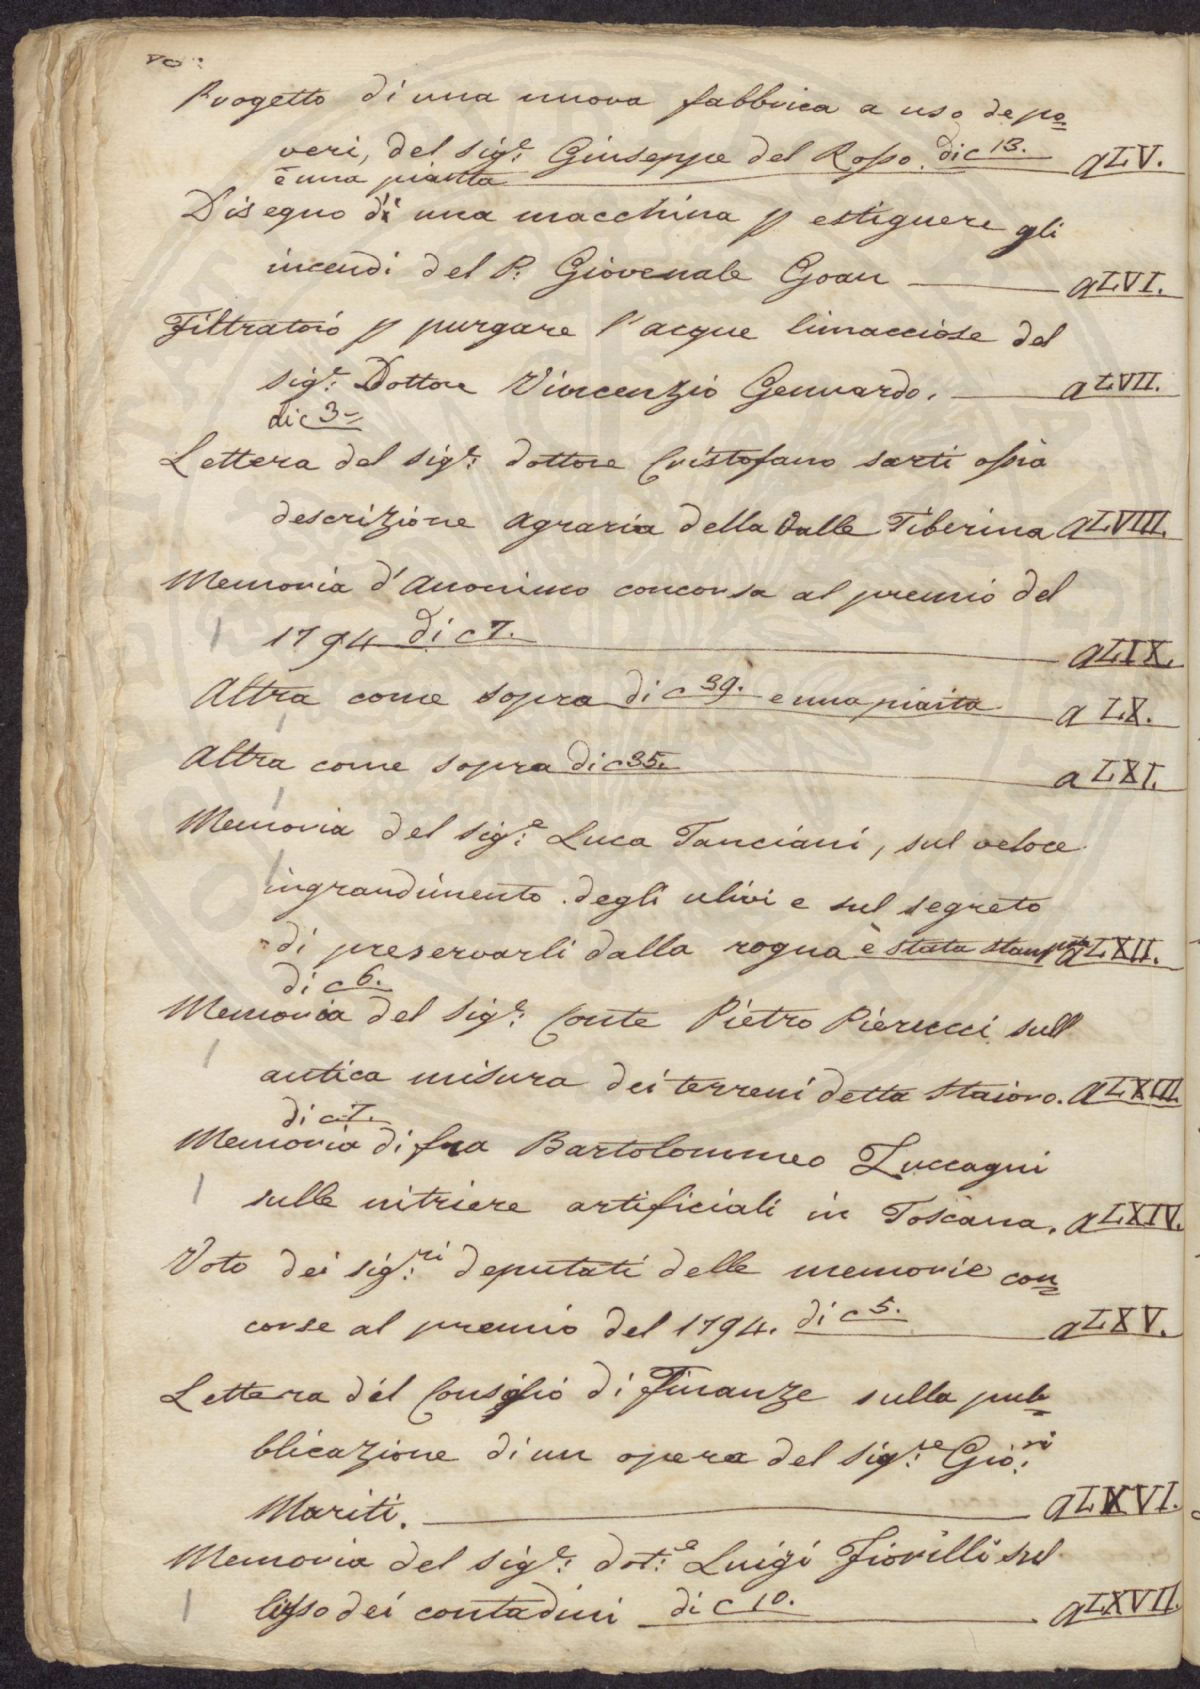 vo:
Progetto di una nuova fabbrica a uso de po=
veri, del sig.e Giuseppe del Rosso. di c 13. a LV.
e una pianta
Disegno di una macchina p estiguere gli
incendi del P. Giovenale Goan a LVI.
Filtratoio p purgare l'acque limacciose del
sig.e Dottore Vincenzio Gennardo. a LVII.
di c 3=
Lettera del sig.e dottore Cristofano sarti ossia
descrizione agraria della Valle Tiberina a LVIII.
Memoria d'anonimo concorsa al premio del
1794 di c 7. a LIX.
Altra come sopra di c 39. e una pianta a LX.
Altra come sopra di c 35. a LXI.
Memoria del sig.e Luca Tanciani, sul veloce
ingrandimento degli ulivi e sul segreto
di preservarli dalla rogna è stata stampata a LXII.
di c 6.
Memoria del sig.e Conte Pietro Pierucci sull
antica misura dei terreni detta staioro. a LXIII
di c 7.
Memoria di fra Bartolommeo Zuccagni
sulle nitriere artificiali in Toscana. a LXIV.
Voto dei sig.ri deputati delle memorie con=
corse al premio del 1794. di c 5. a LXV.
Lettera del Consiglio di Finanze sulla pub=
blicazione di un opera del sig.re Gio:ni
Mariti. a LXVI.
Memoria del sig.e dot.e Luigi Fiorilli sul
lusso dei contadini di c 10. a LXVII.